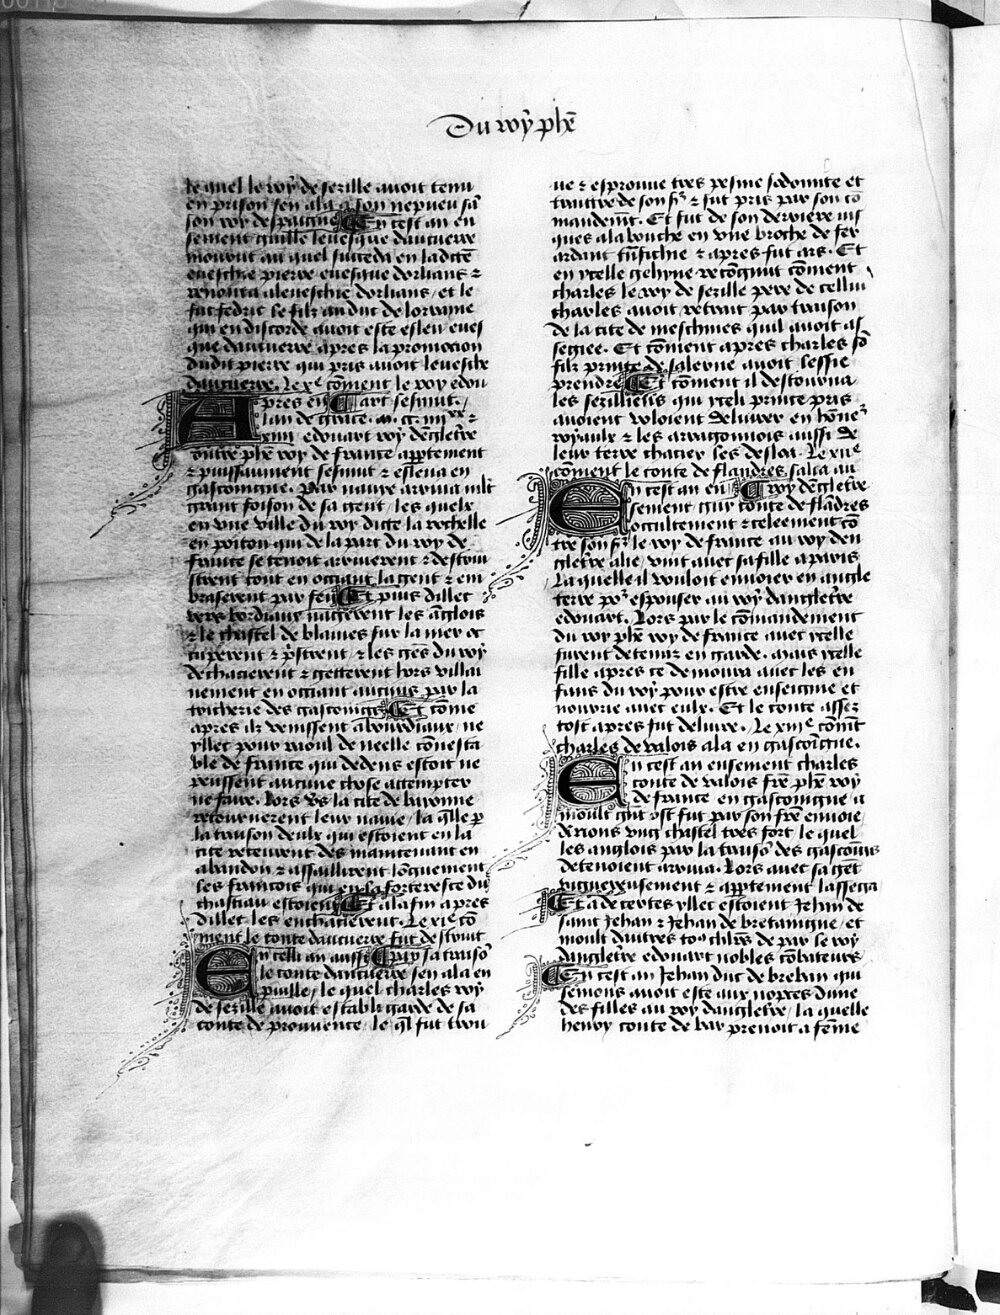 Du roy phẽ
le quel le roy de sezille auoit tenu
en prison sen ala a son nepueu sã
son roy despaigne En cest an en
sement guille leuesque daucuerre
mourut au quel succeda en ladicte
eueschie pierre euesque dorlians ⁊
renonca aleueschie dorlians et le
fut fedric le filz au duc de lorraine
qui en discorde auoit este esleu eues
que daucuerre apres la promocion
dudit pierre qui pris auoit leueschie
daucuerre. Le xe cõment le roy edou
Apres en art sesmut.
lan de grace. m. cc. iiiixx ⁊
xiiii edouart roy dẽgletre
contre phẽ roy de france appertement
⁊ puissaument sesmut ⁊ esleua en
gascoingne. Par nauire arriua mlt
grant foison de sa gent les quelx
en vne ville du roy dicte la rochelle
en poitou qui de la part du roy de
france se tenoit arriuerent ⁊ destrui
strent tout en occiant la gent ⁊ em
braserent par feu Et puis dillec
vers bordiaux nagerent les ãglois
⁊ le chastel de blaiues sur la mer oc
cuperent ⁊ pristrent ⁊ les gẽs du roy
dechacierent ⁊ getterent hors villai
nement en occiant aucuns par la
tricherie des gascoings Et cõme
apres ilz venissent abourdiaux ne
yllec pour raoul de neelle cõnesta
ble de france qui dedens estoit ne
peussent aucune chose attempter
ne faire. Lors vs la cite de baionne
retournerent leur nauie la qlle p
la traison deulx qui estoient en la
cite receurent des maintenant en
abandon ⁊ assaillirent lõguement
les francois qui en la forteresce du
chastiau estoient Et alafin apres
dillec les enchacierent. Le xie cõ
ment le conte daucuerre fut destruit
En cellui an aussi par sa traisõ
le conte daucuerre sen ala en
puille le quel charles roy
de sezille auoit establi garde de sa
conte de prouuence le ql fut trou
ue ⁊ esprouue tres pesme sodomite et
traitre de son sr ⁊ fut pris par son cõ
mandemt. Et fut de son derriere ius
ques ala bouche en vne broche de fer
ardant trãsfichie ⁊ apres fut ars. Et
en ycelle gehyne recõgnut cõment
charles le roy de sezille pere de cellui
charles auoit retrait par traison
de la cite de meschines quil auoit as
segiee. Et cõment apres charles sõ
filz prince de salerne auoit lessie
prendre Et cõment il destourna
les sezilliens qui yceli prince pris
auoient voloient deliurer en hõneˢ
royaulx ⁊ les arragonnois aussi de
leur terre chacier les desloa. Le xiie
cõment le conte de flandres salia au
En cest an en roy dẽgletre
sement guy conte de flãdres
occultement ⁊ celeement cõ
tre son sr le roy de france au roy den
gletre alie vint auec sa fille a paris
La quelle il vouloit enuoier en angle
terre pour espouser au roy dangletre
edouart. Lors par le cõmandement
du roy phẽ roy de france auec ycelle
furent detenuz en garde. mais ycelle
fille apres ce demoura auec les en
fans du roy pour estre enseignie et
nourrie auec eulx. Et le conte assez
tost apres fut deliure. Le xiiie cõmt
charles de valois ala en gascoigne.
En cest an ensement charles
conte de valois fre phẽ roy
de france en gascoingne a
moult grãt ost fut par son fre enuoie
derions vng chastel tres fort le quel
les anglois par la traisõ des gascoins
detenoient arriua. Lors auec sa gẽt
viguereusement ⁊ appertement lassega
Et a decertes yllec estoient Jehan de
saint Jehan ⁊ Jehan de bretaingne et
moult dautres tous chlrs de par le roy
dangletre edouart nobles cõbateurs
En cest an Jehan duc de breban qui
semons auoit este aux nopces dune
des filles au roy dangletre la quelle
henry conte de bar prenoit a fẽme